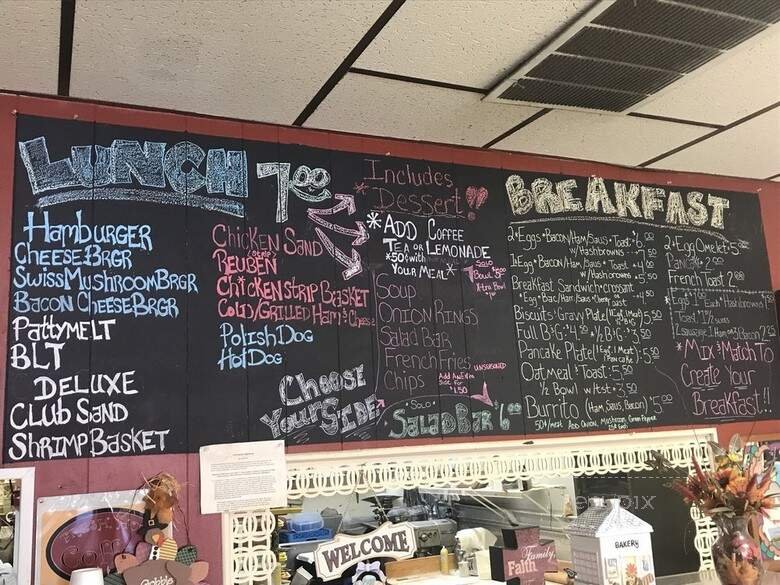 LUNCH 7.00
Hamburger
Cheese Brgr
Swiss Mushroom Brgr
Bacon Cheese Brgr
Patty Melt
BLT
Deluxe
Club Sand
Shrimp Basket
Chicken Sand
Reuben
Chicken Strip Basket
Cold/Grilled Ham & Cheese
Polish Dog
Hot Dog
Choose
Your Side
Includes
*Dessert!!
*Add Coffee
Tea or Lemonade
*50¢ with
Your Meal*
Soup
Solo
Bowl $5.00
Xtra Bowl
Onion Rings
Salad Bar
French Fries unseasoned
Chips
Side for
$1.50
Solo
Salad Bar 6.00
BREAKFAST
2 Eggs*Bacon/Ham/Saus*Toast*6.00
w/Hashbrowns*
1 Egg*Bacon/Ham/Saus*Toast
w/Hashbrowns
Breakfast Sandwich-croissant
Biscuits & Gravy Plate
Full B&G*$4.50 *½ B&G*3.50
Pancake Plate (1 Egg, 1 Meat) 5.50
Oatmeal & Toast*5.50
½ Bowl w/tst*3.50
Burrito (Ham, Saus, Bacon) $5.00
Add Onion, Mushroom, Green Pepper
2*Egg Omelet*5
Pancake 2.00
French Toast 2.00
*Mix & Match To
Create Your
Breakfast!!
WELCOME
Family
Faith
BAKERY
Gobble